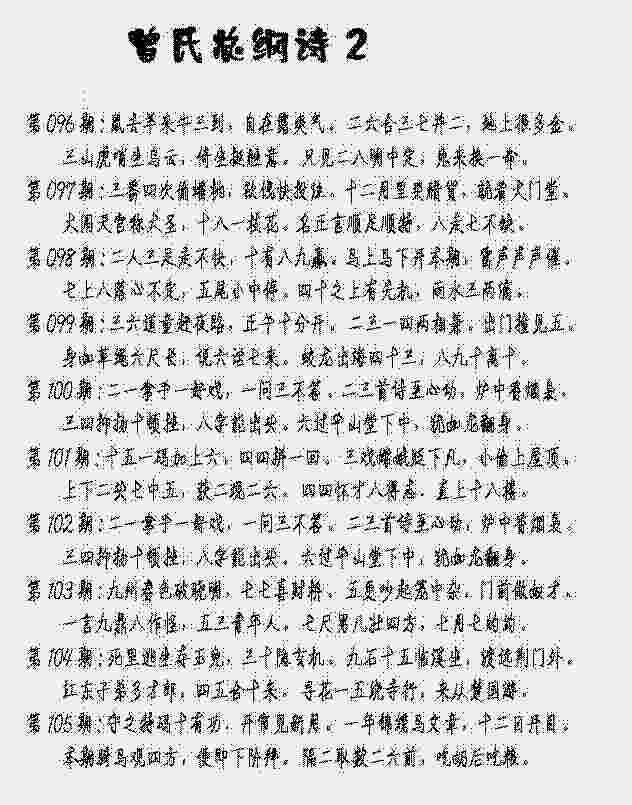 曾氏总纲诗2
第096期:鼠去羊来牛三到，自在露爽气。二六合三七并二，地上很多金。
三山虎啸生乌云，倚坐挺胜意。只见二八朝中定，兔来换一命。
第097期:三番四次偷蟠桃，十二月里卖猪贺，天门堂。
大闹天宫称大圣，十八一枝花。名正言顺足顺特，八走七不缺。
第098期:二人三足走不快，十有八九赢。马上马下开本期，雷声声声催。
七上八落心不定，五尾小中停。四十之上有玄机，雨水三两滴。
第099期:三六道童赶夜路，正午十分开。二三一四两相兼，出门撞见五。
身如草绳六尺长，说六话七来。蛟龙出海四十三，八九十离十。
第100期:二一拿手一好戏，一问三不答。二三首诗至心动，炉中香烟袅。
三四抑扬十顿挫，八字能出头。六过平山堂下中，犹如龙翻身。
第101期:十五一码加上六，四四拼一回。三戏嫦娥贬下凡，小偷上屋顶。
上下二头七中五，获二现二六。四四怀才八得志，直上十八楼。
第102期:二一拿手一好戏，一问三不答。二三首诗至心动，炉中香烟袅。
三四抑扬十顿挫，八字能出头。六过平山堂下中，犹如龙翻身。
第103期:九州春色破晓晴，七七喜财粉。五更吵起笼中杂，门前做奴才。
一言九鼎八作怪，五三青年人。七尺男儿壮四方，七月七的约。
第104期:死里逃生存玉兔，三十隐玄机。九石十五临溪坐，渡远荆门外。
江东子弟多才郎，四五合十来。寻花一五绕寺行，来从楚国游。
第105期:守之特码十有功，开常见新月。一年锦绣马文章，十二日丹目。
本期骑马观四方，便即下阶拜。隔二取数二六前，吃奶后吃粮。